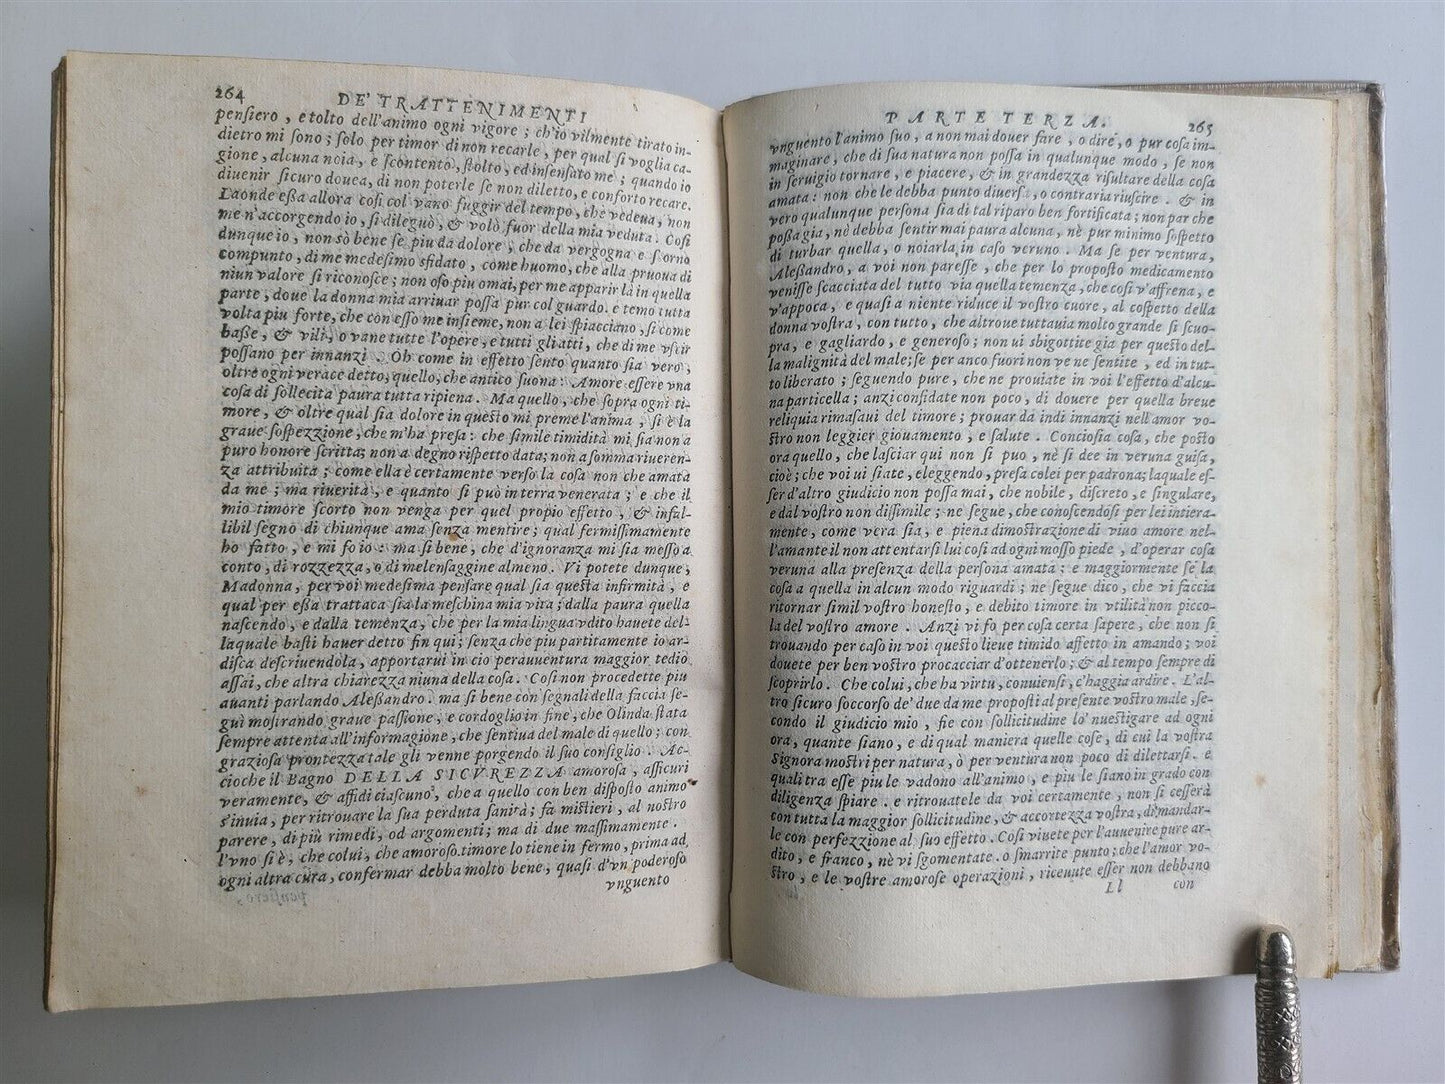 264 DE' TRATTENIMENTI
pensiero, e tolto dell'animo ogni vigore; ch'io vilmente tirato in-
dietro mi sono; solo per timor di non recarle, per qual si voglia ca-
gione, alcuna noia, e scontento, stolto, ed insensato me; quando io
diuenir sicuro douea, di non poterle se non diletto, e conforto recare.
Laonde eßa allora cosi col vano fuggir del tempo, che vedeua, non
me n'accorgendo io, si dileguò, & volò fuor della mia veduta. Cosi
dunque io, non sò bene se piu da dolore, che da vergogna e scorno
compunto, di me medesimo sfidato, come huomo, che alla pruoua di
niun valore si riconosce; non oso piu omai, per me apparir là in quella
parte, doue la donna mia arriuar possa pur col guardo. e temo tutta
volta piu forte, che con esso me insieme, non a lei spiacciano, si come
baße, & vili, o vane tutte l'opere, e tutti gli atti, che di me vscir
possano per innanzi. Oh come in effetto sento quanto sia vero,
oltre ogni verace detto, quello, che antico suona: Amore essere vna
cosa di sollecita paura tutta ripiena. Ma quello, che sopra ogni ti-
more, & oltre qual sia dolore in questo mi preme l'anima, si è la
graue sospezzione, che m'ha presa: che simile timidità mi sia non a
puro honore scritta; non a degno rispetto data; non a somma riueren-
za attribuita; come ella è certamente verso la cosa non che amata
da me; ma riuerita, e quanto si può in terra venerata; e che il
mio timore scorto non venga per quel propio effetto, & infal-
libil segno di chiunque ama senza mentire; qual fermissimamente
ho fatto, e mi fo io: ma si bene, che d'ignoranza mi sia messo a
conto, di rozzezza, o di melensaggine almeno. Vi potete dunque,
Madonna, per voi medesima pensare qual sia questa infirmità, e
qual per eßa trattata sia la meschina mia vita; dalla paura quella
nascendo, e dalla temenza, che per la mia lingua vdito hauete del-
la quale basti hauer detto fin qui; senza che piu partitamente io ar-
disca descriuendola, apportarui in cio perauuentura maggior tedio
assai, che altra chiarezza niuna della cosa. Cosi non procedette piu
auanti parlando Aleßandro. ma si bene con segnali della faccia se-
guì mostrando graue passione, e cordoglio in fine, che Olinda stata
sempre attenta all'informagione, che sentiua del male di quello; con
graziosa prontezza tale gli venne porgendo il suo consiglio. Ac-
cioche il Bagno DELLA SICVREZZA amorosa, assicuri
veramente, & affidi ciascuno, che a quello con ben disposto animo
s'inuia, per ritrouare la sua perduta sanità; fa mistieri, al nostro
parere, di più rimedi, od argomenti; ma di due massimamente.
l'vno si è, che colui, che amoroso timore lo tiene in fermo, prima ad
ogni altra cura, confermar debba molto bene, quasi d'vn poderoso
vnguento
PARTE TERZA. 265
vnguento l'animo suo, a non mai douer fare, o dire, o pur cosa im-
maginare, che di sua natura non possa in qualunque modo, se non
in seruigio tornare, e piacere, & in grandezza risultare della cosa
amata: non che le debba punto diuersa, o contraria riuscire. & in
vero qualunque persona sia di tal riparo ben fortificata; non par che
poßa gia, nè debba sentir mai paura alcuna, nè pur minimo sospetto
di turbar quella, o noiarla in caso veruno. Ma se per ventura,
Aleßandro, a voi non paresse, che per lo proposto medicamento
venisse scacciata del tutto via quella temenza, che cosi v'affrena, e
v'appoca, e quasi a niente riduce il vostro cuore, al cospetto della
donna vostra, con tutto, che altroue tuttauia molto grande si scuo-
pra, e gagliardo, e generoso; non ui sbigottite gia per questo del-
la malignità del male; se per anco fuori non ve ne sentite, ed in tut-
to liberato; seguendo pure, che ne prouiate in voi l'effetto d'alcu-
na particella; anzi confidate non poco, di douere per quella breue
reliquia rimasaui del timore; prouar da indi innanzi nell'amor vo-
stro non leggier giouamento, e salute. Conciosia cosa, che posto
ora quello, che lasciar qui non si puo, nè si dee in veruna guisa,
cioè; che voi ui siate, eleggendo, presa colei per padrona; laquale es-
ser d'altro giudicio non possa mai, che nobile, discreto, e singulare,
e dal vostro non dissimile; ne segue, che conoscendosi per lei intiera-
mente, come vera sia, e piena dimostrazione di viuo amore nel-
l'amante il non attentarsi lui cosi ad ogni mosso piede, d'operar cosa
veruna alla presenza della persona amata; e maggiormente se la
cosa a quella in alcun modo riguardi; ne segue dico, che vi faccia
ritornar simil vostro honesto, e debito timore in vtilità non picco-
la del vostro amore. Anzi vi fo per cosa certa sapere, che non si
trouando per caso in voi questo lieue timido affetto in amando; voi
douete per ben vostro procacciar d'ottenerlo; & al tempo sempre di
scoprirlo. Che colui, che ha virtù, conuiensi, c'haggia ardire. L'al-
tro sicuro soccorso de' due da me proposti al presente vostro male, se-
condo il giudicio mio, fie con sollicitudine lo 'nuestigare ad ogni
ora, quante siano, e di qual maniera quelle cose, di cui la vostra
Signora mostri per natura, ò per ventura non poco di dilettarsi. e
quali tra esse piu le vadono all'animo, e piu le siano in grado con
diligenza spiare. e ritrouatele da voi certamente, non si cesserà
con tutta la maggior sollicitudine, & accortezza vostra, di mandar-
le con perfezzione al suo effetto. Cosi viuete per l'auuenire pure ar-
dito, e franco, nè vi sgomentate. o smarrite punto; che l'amor vo-
stro, e le vostre amorose operazioni, riceuute esser non debbano
Ll con